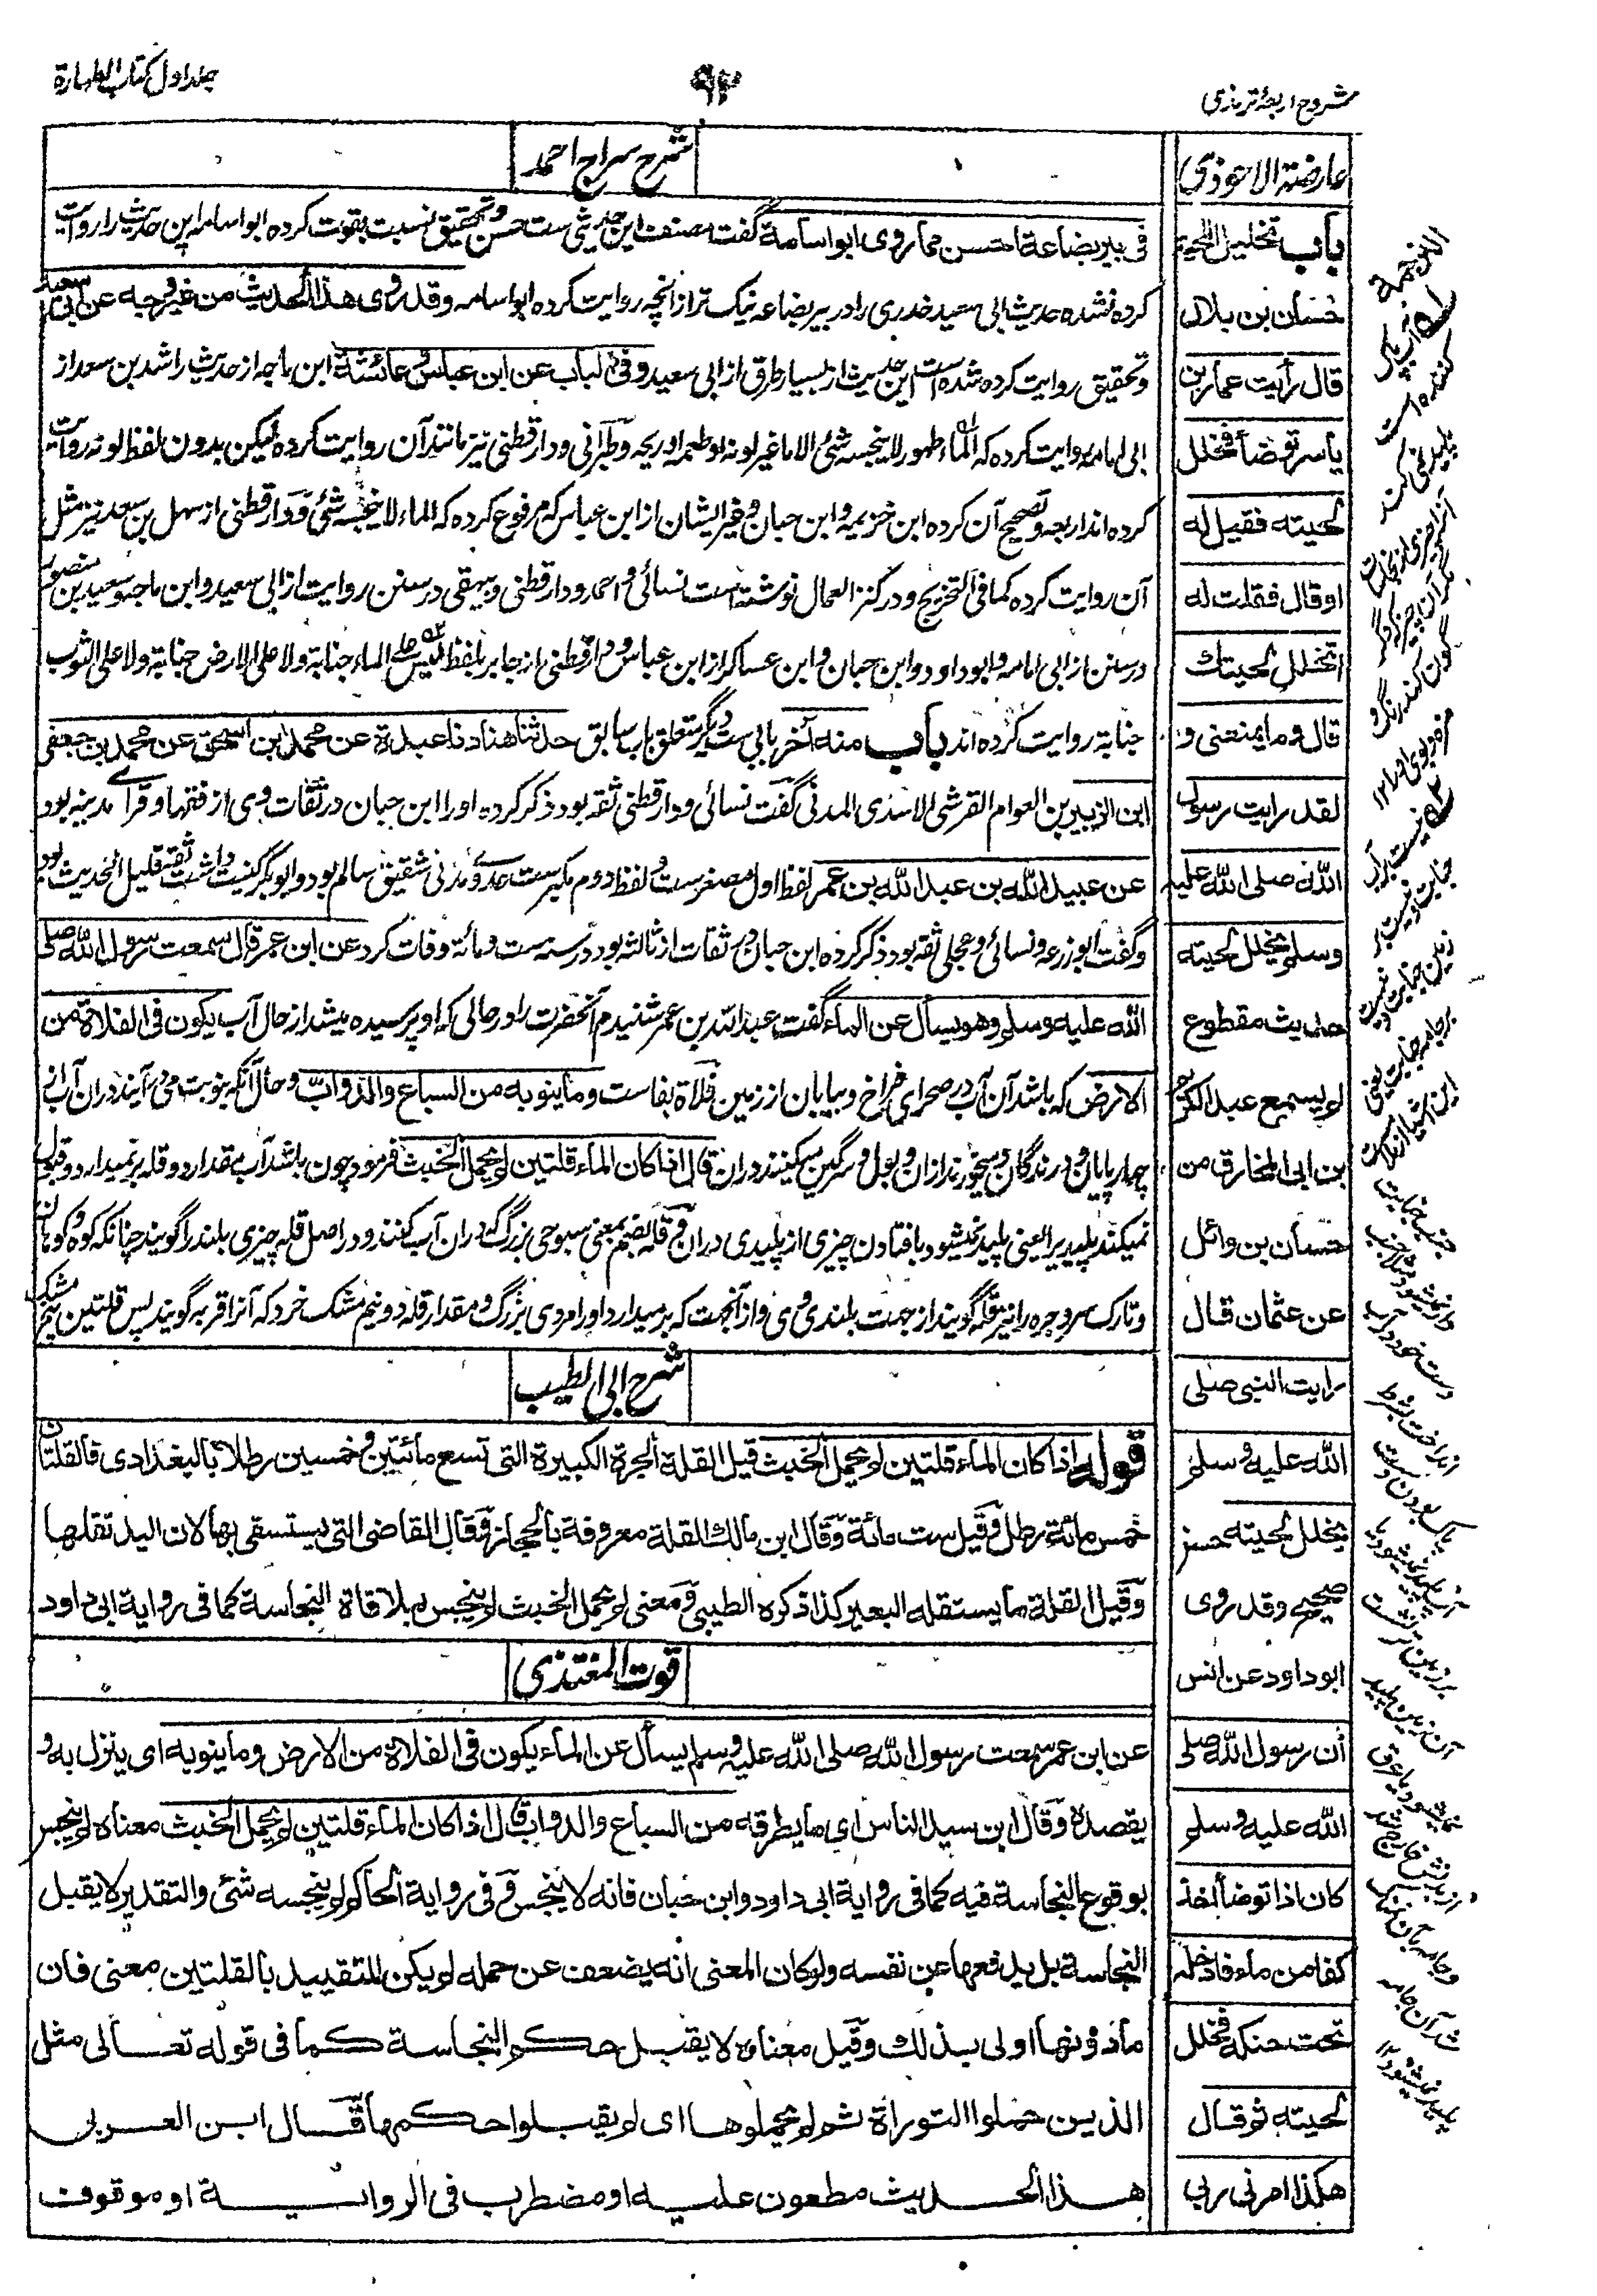 مشروح اربعۀ ترمذی
۹۳
جلد اول کتاب الطهارة
عارضة الاحوذی
باب تخلیل اللحیة
حسان بن بلال
قال رأیت عمار بن
یاسر توضأ فخلل
لحیته فقیل له
او قال فقلت له
اتخلل لحیتك
قال وما یمنعنی و
لقد رایت رسول
الله صلی الله علیه
وسلم یخلل لحیته
حدیث مقطوع
لم یسمع عبد الکریم
بن ابی المخارق من
حسان بن وائل
عن عثمان قال
رایت النبی صلی
الله علیه وسلم
یخلل لحیته حسن
صحیح وقد روی
ابو داود عن انس
أن رسول الله صلی
الله علیه وسلم
کان اذا توضأ اخذ
کفا من ماء فادخله
تحت حنکه فخلل
لحیته ثم قال
هکذا امرنی ربی
شرح سراج احمد
فی بیر بضاعة احسن مما روی ابو اسامة گفت مصنف این حدیثی ست حسن و تحقیق نسبت بقوت کرده ابو اسامه این حدیث را روایت
کرده نشده حدیث ابی سعید خدری را در بیر بضاعه نیک تر از انچه روایت کرده ابو اسامه وقد روی هذا الحدیث من غیر وجه عن ابی سعید
وتحقیق روایت کرده شده است این حدیث از بسیار طرق از ابی سعید وفی الباب عن ابن عباس وعائشة ابن ماجه از حدیث راشد بن سعد از
ابی امامه روایت کرده که ان الماء طهور لا ینجسه شئ الا ما غیر لونه او طعمه او ریحه وطبرانی ودارقطنی نیز مانند آن روایت کرده لیکن بدون لفظ لونه روایت
کرده اند اربعه وتصحیح آن کرده ابن خزیمه وابن حبان وغیر ایشان از ابن عباس که مرفوع کرده که الماء لا ینجسه شئ ودارقطنی از سهل بن سعد نیز مثل
آن روایت کرده کما فی التخریج ودر کنز العمال نوشته است نسائی و احمد ودارقطنی وبیهقی در سنن روایت از ابی سعید وابن ماجه وسعید بن منصور
در سنن از ابی امامه وابو داود وابن حبان وابن عساکر از ابن عباس ودارقطنی از جابر بلفظ لیس علی الماء جنابة ولا علی الارض جنابة ولا علی الثوب
جنابة روایت کرده اند باب منه آخر بابی ست دیگر متعلق باب سابق حدثنا هناد نا عبدة عن محمد ابن اسحق عن محمد بن جعفر
ابن الزبیر بن العوام القرشی الاسدی المدنی گفت نسائی ودارقطنی ثقه بود ذکر کرده او را ابن حبان در ثقات وی از فقها وقرای مدینه بود
عن عبید الله بن عبد الله بن عمر لفظ اول مصغر ست ولفظ دوم مکبر ست عدوی مدنی شقیق سالم بود وابو بکر کنیت داشت ثقه قلیل الحدیث بود
وگفت ابو زرعه ونسائی وعجلی ثقه بود ذکر کرده ابن حبان در ثقات از ثالثه بود در سنه ست ومائة وفات کرد عن ابن عمر قال سمعت رسول الله صلی
الله علیه وسلم وهو یسأل عن الماء گفت عبد الله بن عمر شنیدم آنحضرت را در حالی که او پرسیده میشد از حال آب یکون فی الفلاة من
الارض که باشد آن آب در صحرای فراخ وبیابان از زمین فلاة بفا ست وما ینوبه من السباع والدواب وحال آنکه بنوبت می در آیند در آن آب از
چهارپایان ودرندگان ومیخورند ازان وبول وسرگین میکنند دران قال اذا کان الماء قلتین لم یحمل الخبث فرمود چون باشد آب مقدار دو قله بر نمیدارد وقبول
نمیکند پلید یرا یعنی پلید نمیشود بافتادن چیزی از پلیدی دران وقله بضم بمعنی سبوی بزرگ که دران آب کنند ودر اصل قله چیزی بلند را گویند چنانکه کوه وکوهان
وتارک سر وجره را نیز قله گویند از جهت بلندی وی واز آنجهت که بر میدارد او را مردی بزرگ ومقدار قله دو نیم مشک خرد که آنرا قربه گویند پس قلتین پنج مشک
شرح ابی الطیب
قوله اذا کان الماء قلتین لم یحمل الخبث قیل القلة الجرة الکبیرة التی تسع مائتین وخمسین رطلا بالبغدادی فالقلتان
خمس مائة رطل وقیل ست مائة وقال ابن مالك القلة معروفة بالحجاز وقال القاضی التی یستسقی بها لان الید تقلها
وقیل القلة ما یستقله البعیر کذا ذکره الطیبی ومعنی لم یحمل الخبث لم ینجس بملاقاة النجاسة کما فی روایة ابی داود
قوت المغتذی
عن ابن عمر سمعت رسول الله صلی الله علیه وسلم یسأل عن الماء یکون فی الفلاة من الارض وما ینوبه ای ینزل به و
یقصده وقال ابن سید الناس ای ما یطرقه من السباع والدواب قال اذا کان الماء قلتین لم یحمل الخبث معناه لم ینجس
بوقوع النجاسة فیه کما فی روایة ابی داود وابن حبان فانه لا ینجس وفی روایة الحاکم لم ینجسه شئ والتقدیر لا یقبل
النجاسة بل یدفعها عن نفسه ولو کان المعنی انه یضعف عن حمله لم یکن للتقیید بالقلتین معنی فان
ما دونها اولی بذلك وقیل معناه لا یقبل حکم النجاسة کما فی قوله تعالی مثل
الذین حملوا التوراة ثم لم یحملوها ای لم یقبلوا حکمها قال ابن العربی
هذا الحدیث مطعون علیه او مضطرب فی الروایة او موقوف